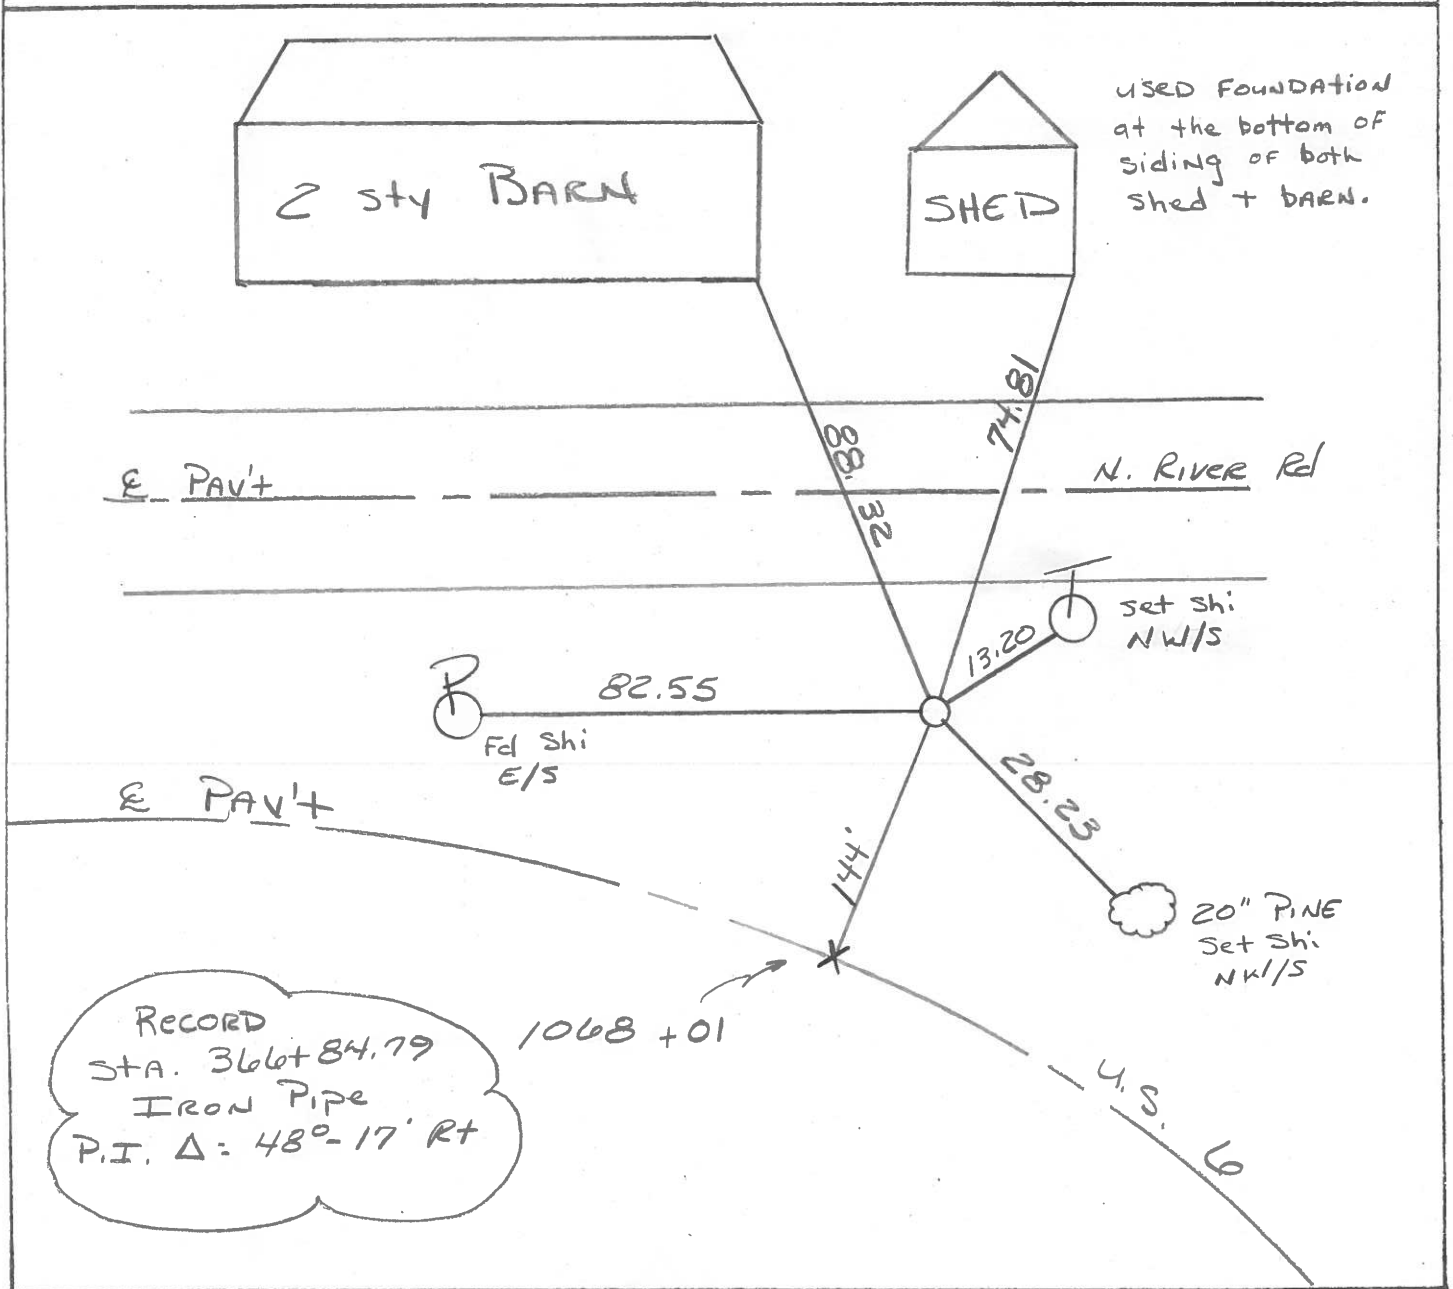 2 sty BARN
SHED
USED FOUNDATION
at the bottom OF
siding OF both
shed + bARN.
88.32
74.81
℄ PAV't
N. RIVER Rd
set shi
NW/S
13.20
P
82.55
Fd shi
E/S
28.23
℄ PAV't
144'
20" PINE
Set Shi
NW/S
1068 +01
U.S. 6
RECORD
StA. 366+84.79
IRON PIPE
P.I. Δ = 48°-17' Rt